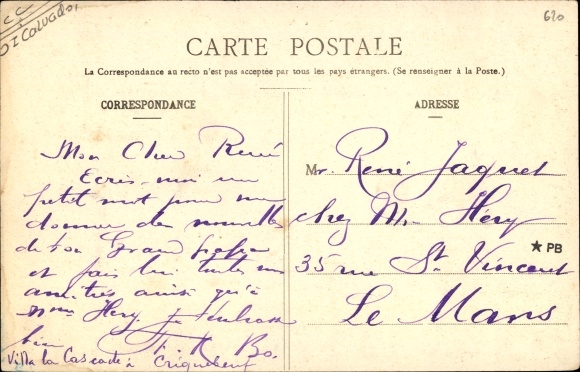 CC
DI CALVADOS
620
CARTE POSTALE
La Correspondance au recto n'est pas acceptée par tous les pays étrangers. (Se renseigner à la Poste.)
CORRESPONDANCE
Mon Cher René
Ecris-moi un
petit mot pour me
donner des nouvelles
de ton Grand frère
et fais lui toutes mes
amitiés ainsi qu'à
Mme Hery, Je t'embrasse
bien
Villa la Cascade à Criquebeuf
ADRESSE
Mr. René Jaquet
chez Mr Hery
35 rue St Vincent
★ PB
Le Mans